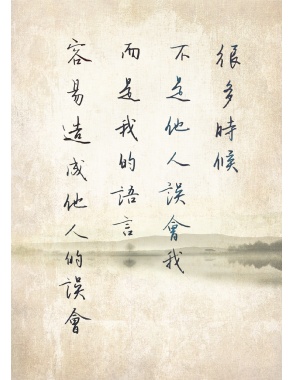 很多時候
不是他人誤會我
而是我的語言
容易造成他人的誤會